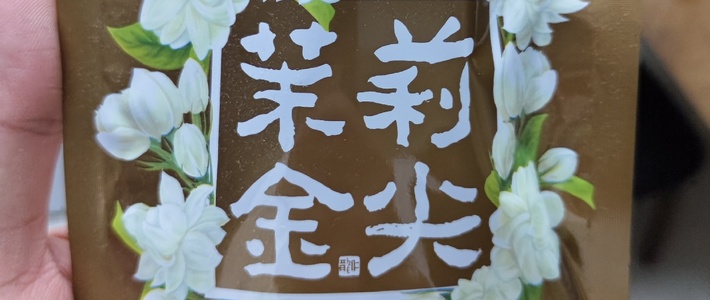 茉莉
金尖